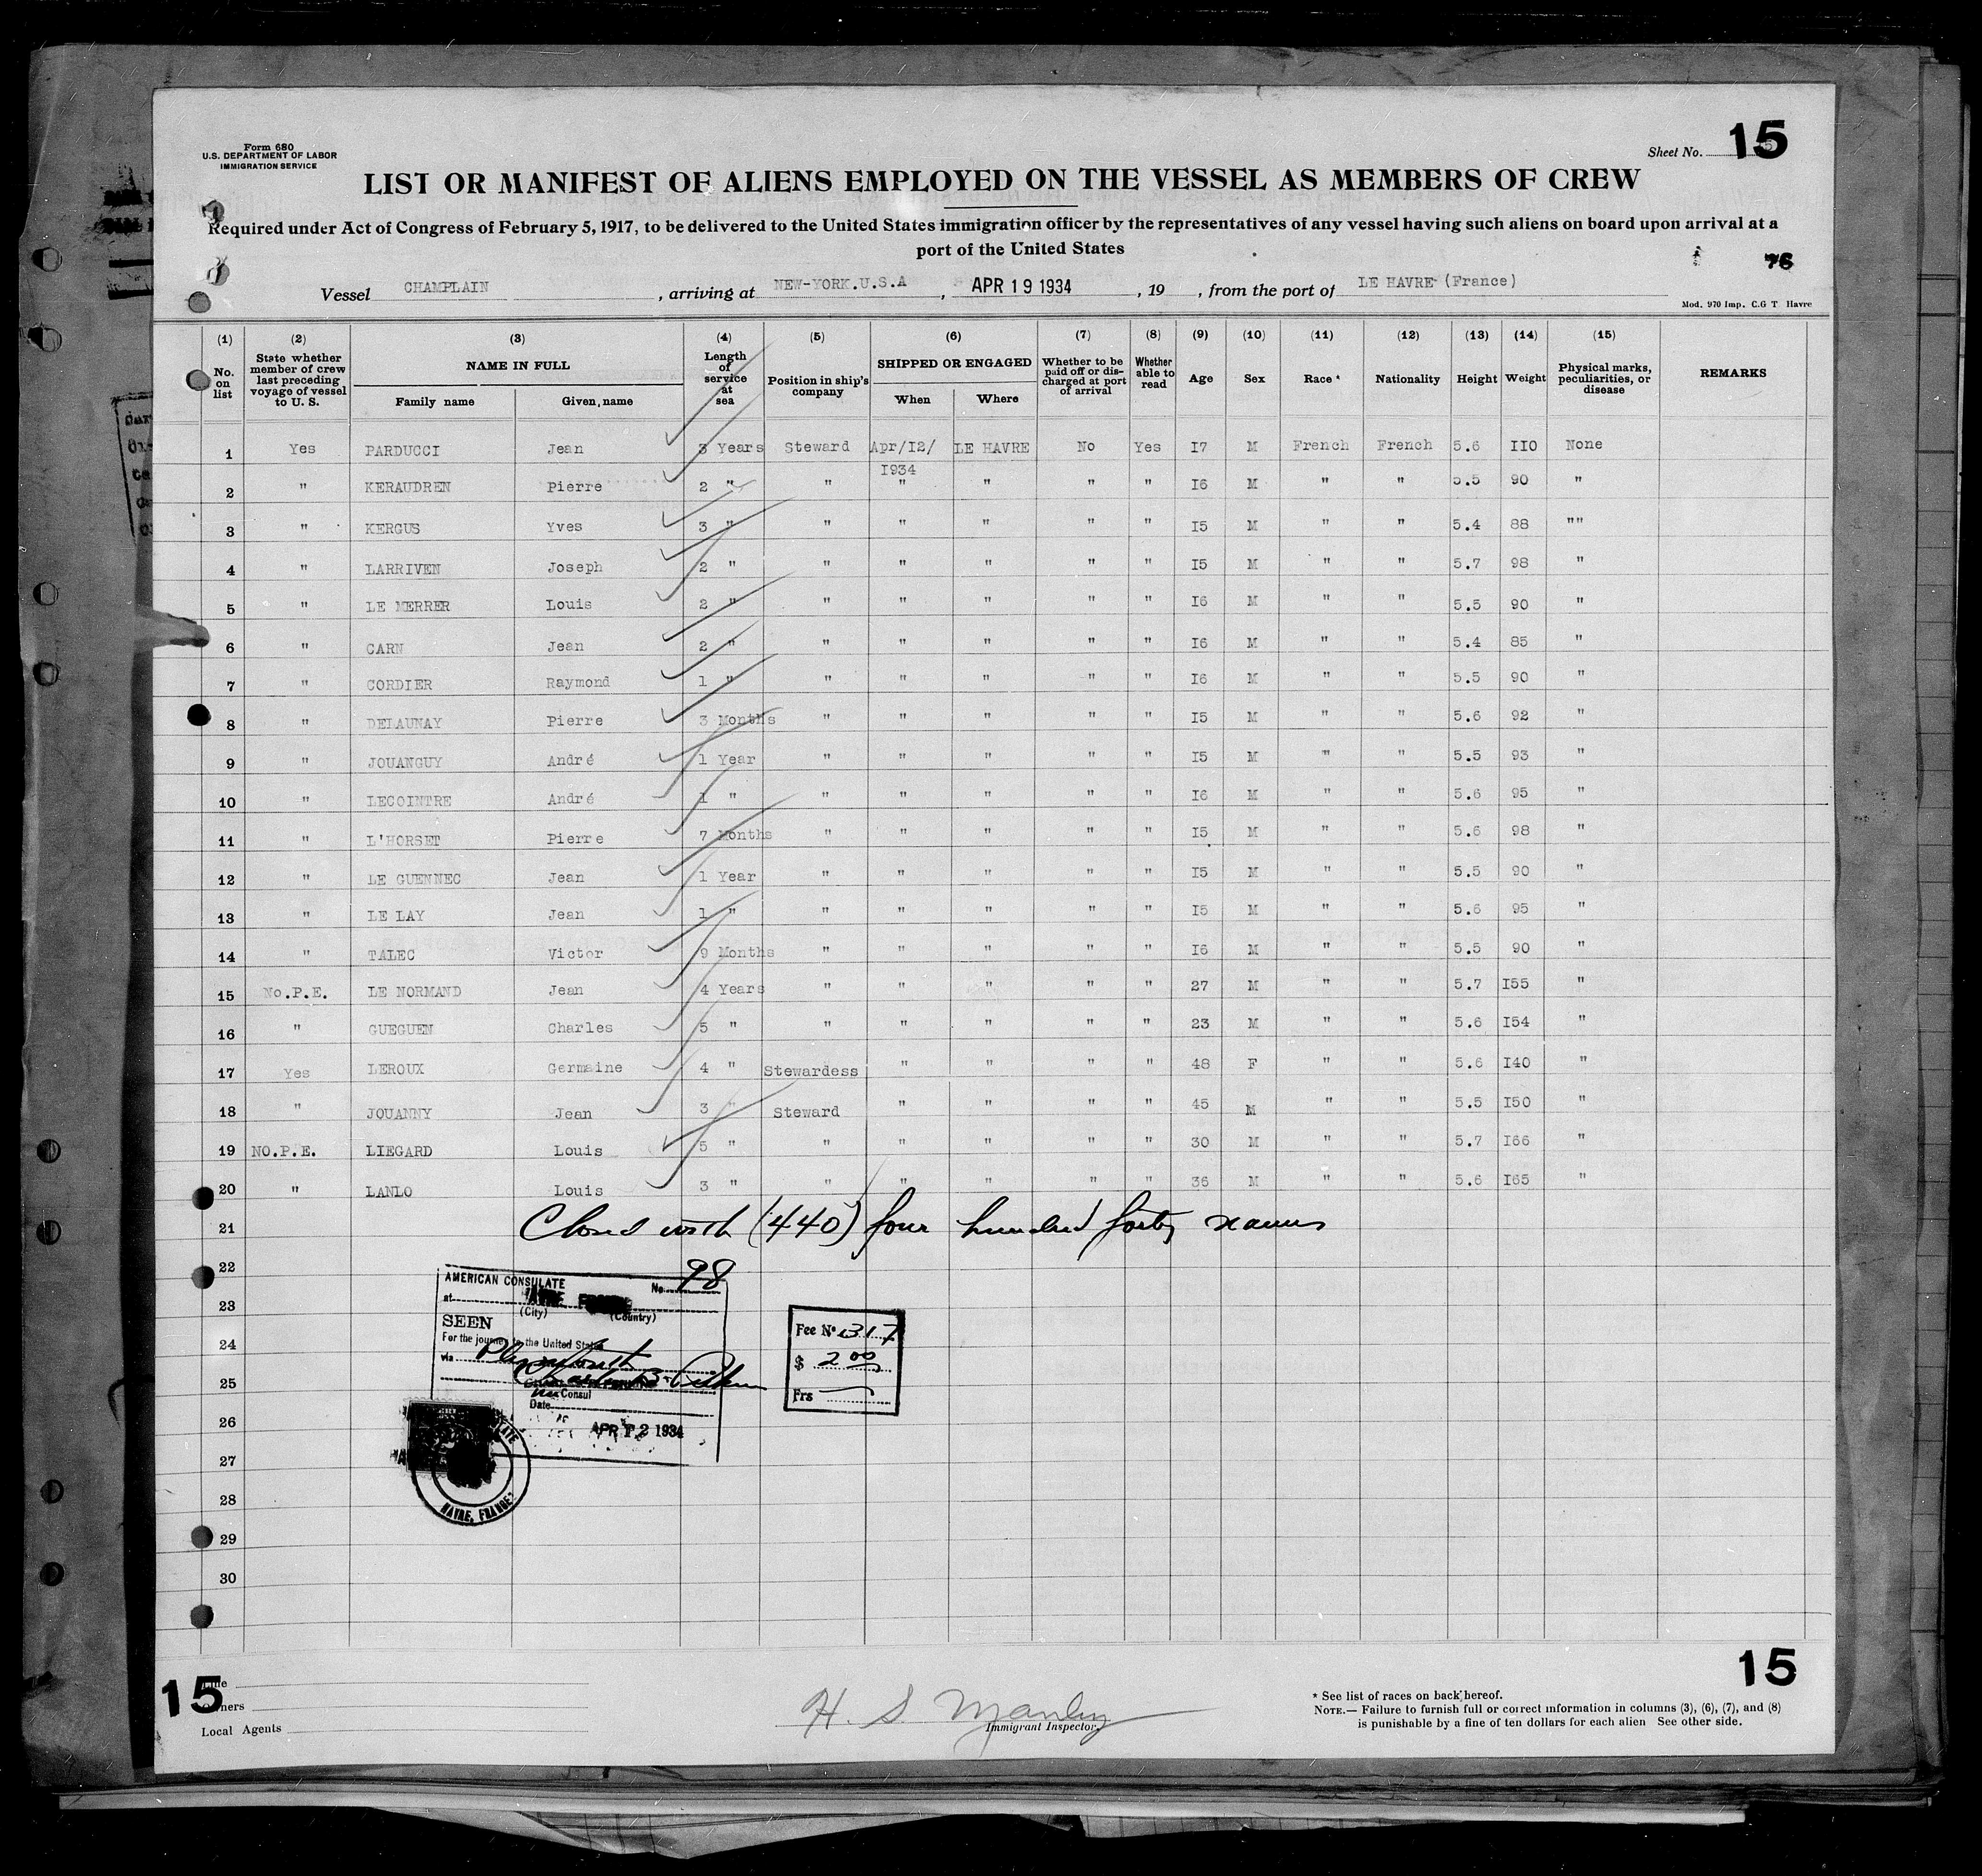 Form 680
U.S. DEPARTMENT OF LABOR
IMMIGRATION SERVICE
Sheet No. 15
LIST OR MANIFEST OF ALIENS EMPLOYED ON THE VESSEL AS MEMBERS OF CREW
Required under Act of Congress of February 5, 1917, to be delivered to the United States immigration officer by the representatives of any vessel having such aliens on board upon arrival at a
port of the United States
76
Vessel CHAMPLAIN , arriving at NEW-YORK.U.S.A , APR 19 1934 , 19 , from the port of LE HAVRE (France)
Mod. 970 Imp. C.G T Havre
(1) (2) (3) (4) (5) (6) (7) (8) (9) (10) (11) (12) (13) (14) (15)
No. on list State whether member of crew last preceding voyage of vessel to U. S. NAME IN FULL Family name Given name Length of service at sea Position in ship's company SHIPPED OR ENGAGED When Where Whether to be paid off or discharged at port of arrival Whether able to read Age Sex Race * Nationality Height Weight Physical marks, peculiarities, or disease REMARKS
1 Yes PARDUCCI Jean 3 Years Steward Apr/I2/ LE HAVRE No Yes I7 M French French 5.6 IIO None
I934
2 " KERAUDREN Pierre 2 " " " " " " I6 M " " 5.5 90 "
3 " KERGUS Yves 3 " " " " " " I5 M " " 5.4 88 ""
4 " LARRIVEN Joseph 2 " " " " " " I5 M " " 5.7 98 "
5 " LE MERRER Louis 2 " " " " " " I6 M " " 5.5 90 "
6 " CARN Jean 2 " " " " " " I6 M " " 5.4 85 "
7 " CORDIER Raymond 1 " " " " " " I6 M " " 5.5 90 "
8 " DELAUNAY Pierre 3 Months " " " " " I5 M " " 5.6 92 "
9 " JOUANGUY André 1 Year " " " " " I5 M " " 5.5 93 "
10 " LECOINTRE André 1 " " " " " " I6 M " " 5.6 95 "
11 " L'HORSET Pierre 7 Months " " " " " I5 M " " 5.6 98 "
12 " LE GUENNEC Jean 1 Year " " " " " I5 M " " 5.5 90 "
13 " LE LAY Jean 1 " " " " " " I5 M " " 5.6 95 "
14 " TALEC Victor 9 Months " " " " " I6 M " " 5.5 90 "
15 No.P.E. LE NORMAND Jean 4 Years " " " " " 27 M " " 5.7 I55 "
16 " GUEGUEN Charles 5 " " " " " " 23 M " " 5.6 I54 "
17 Yes LEROUX Germaine 4 " Stewardess " " " " 48 F " " 5.6 I40 "
18 " JOUANNY Jean 3 " Steward " " " " 45 M " " 5.5 I50 "
19 NO.P.E. LIEGARD Louis 5 " " " " " " 30 M " " 5.7 I66 "
20 " LANLO Louis 3 " " " " " " 36 M " " 5.6 I65 "
21 Closed with (440) four hundred forty names
22
23
24
25
26
27
28
29
30
AMERICAN CONSULATE No. 98
at
(City) (Country)
SEEN
For the journey to the United States
via Plymouth
Consul
Date
APR 12 1934
HAVRE, FRANCE
Fee No. 1317
$ 2 00
Frs
15
15
Line
Owners
Local Agents
H. S. Manley
Immigrant Inspector
* See list of races on back hereof.
NOTE.— Failure to furnish full or correct information in columns (3), (6), (7), and (8)
is punishable by a fine of ten dollars for each alien See other side.